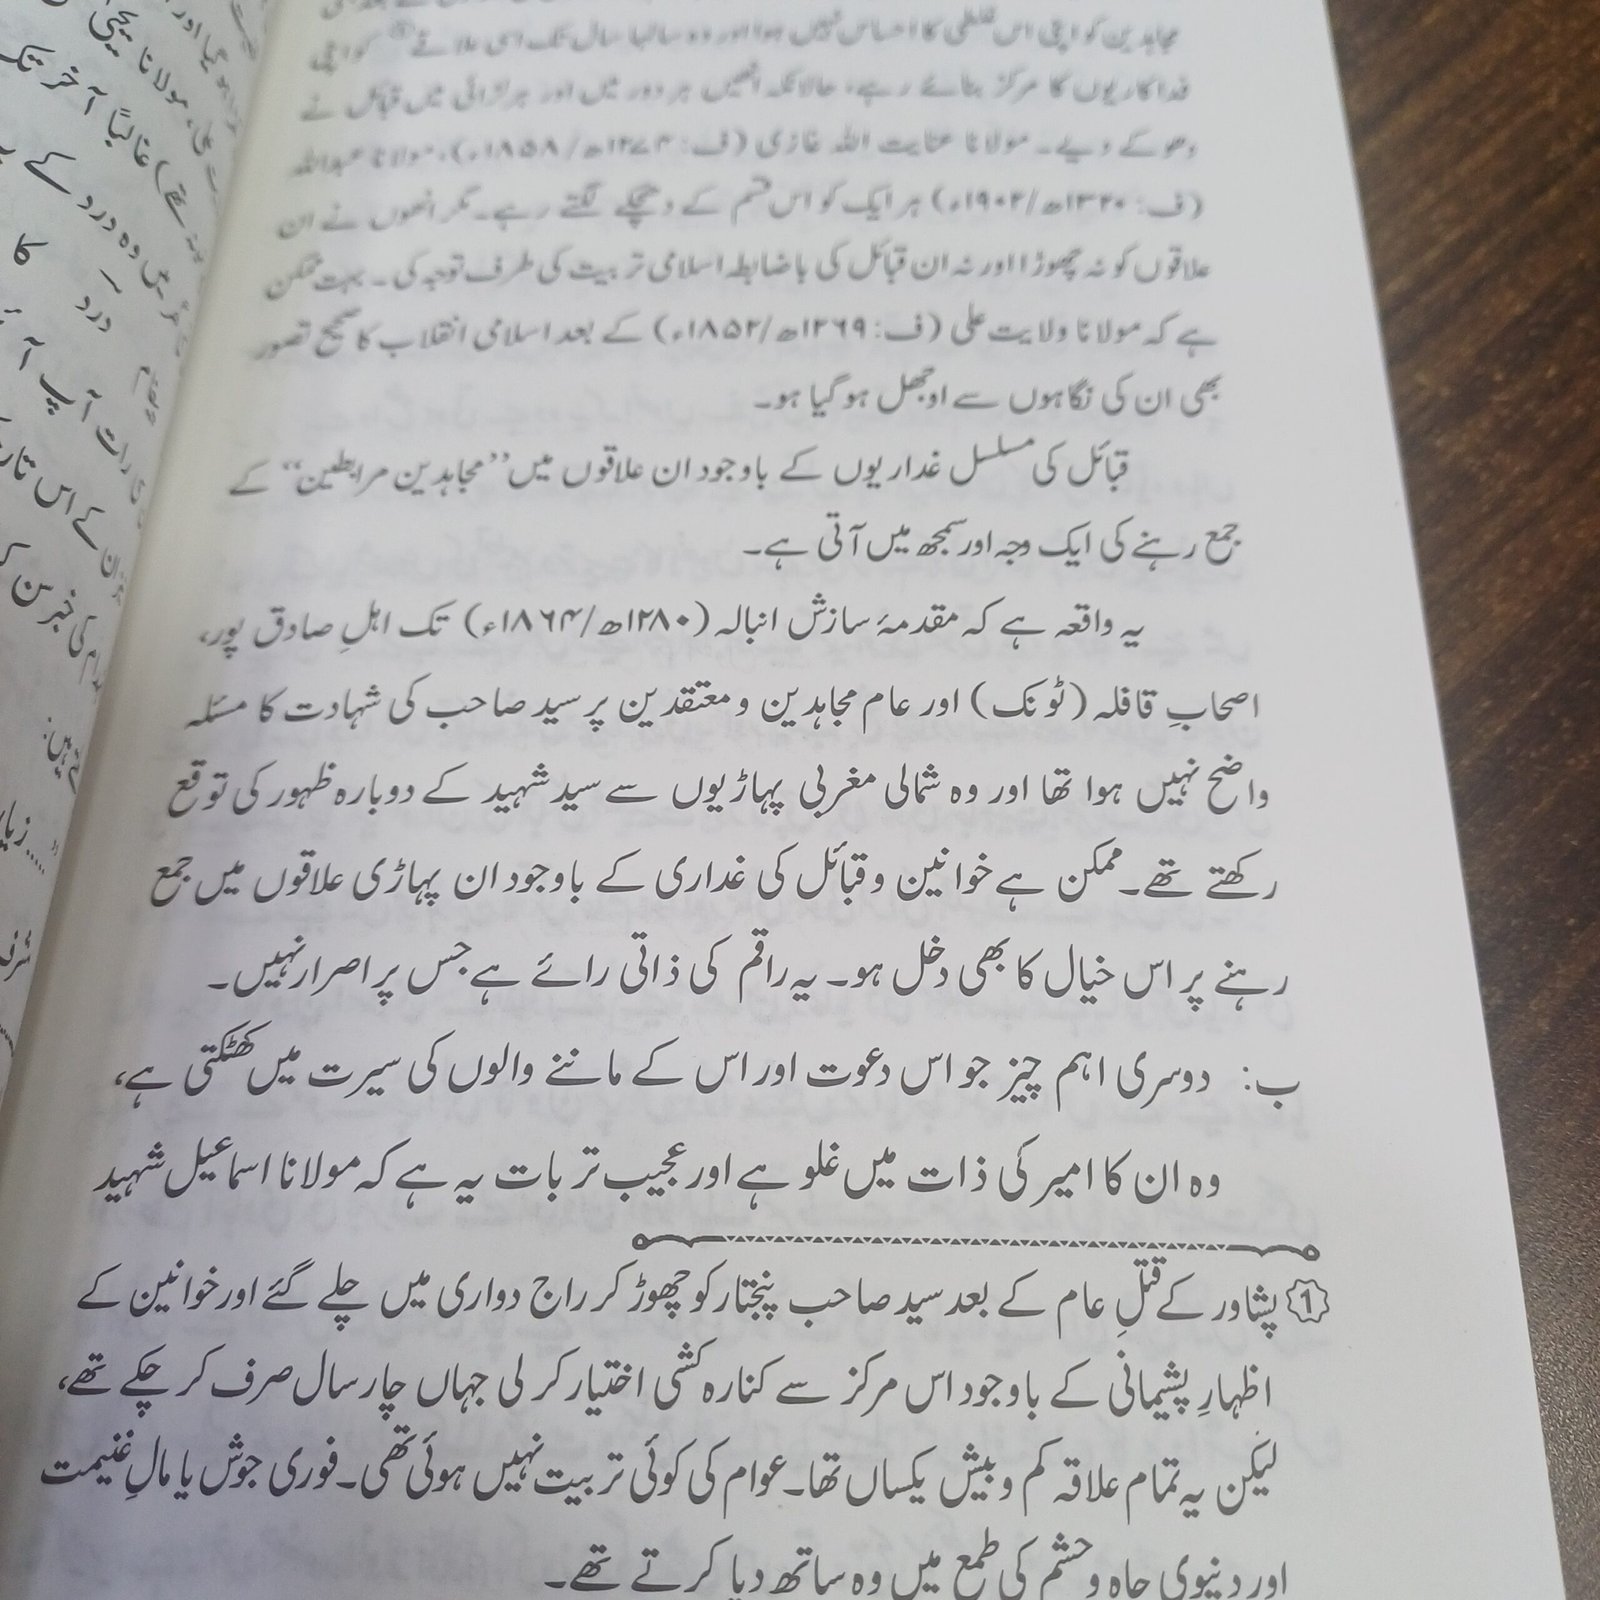 مجاہدین کو اپنی اس غلطی کا احساس نہیں ہوا اور وہ سالہا سال تک اسی علاقے① کو اپنی
فداکاریوں کا مرکز بنائے رہے، حالانکہ انھیں ہر دور میں اور ہر لڑائی میں قبائل نے
دھوکے دیے۔ مولانا عنایت اللہ غازی (ف: ۱۲۷۴ھ/۱۸۵۸ء)، مولانا عبداللہ
(ف: ۱۳۲۰ھ/۱۹۰۲ء) ہر ایک کو اس قسم کے دھچکے لگتے رہے۔ مگر انھوں نے ان
علاقوں کو نہ چھوڑا اور نہ ان قبائل کی باضابطہ اسلامی تربیت کی طرف توجہ کی۔ بہت ممکن
ہے کہ مولانا ولایت علی (ف: ۱۲۶۹ھ/۱۸۵۲ء) کے بعد اسلامی انقلاب کا صحیح تصور
بھی ان کی نگاہوں سے اوجھل ہو گیا ہو۔
قبائل کی مسلسل غداریوں کے باوجود ان علاقوں میں ’’مجاہدین مرابطین‘‘ کے
جمع رہنے کی ایک وجہ اور سمجھ میں آتی ہے۔
یہ واقعہ ہے کہ مقدمۂ سازش انبالہ (۱۲۸۰ھ/۱۸۶۴ء) تک اہلِ صادق پور،
اصحابِ قافلہ (ٹونک) اور عام مجاہدین و معتقدین پر سید صاحب کی شہادت کا مسئلہ
واضح نہیں ہوا تھا اور وہ شمالی مغربی پہاڑیوں سے سید شہید کے دوبارہ ظہور کی توقع
رکھتے تھے۔ ممکن ہے خوانین و قبائل کی غداری کے باوجود ان پہاڑی علاقوں میں جمع
رہنے پر اس خیال کا بھی دخل ہو۔ یہ راقم کی ذاتی رائے ہے جس پر اصرار نہیں۔
ب: دوسری اہم چیز جو اس دعوت اور اس کے ماننے والوں کی سیرت میں کھٹکتی ہے،
وہ ان کا امیر کی ذات میں غلو ہے اور عجیب تر بات یہ ہے کہ مولانا اسماعیل شہید
① پشاور کے قتلِ عام کے بعد سید صاحب پنجتار کو چھوڑ کر راج دواری میں چلے گئے اور خوانین کے
اظہارِ پشیمانی کے باوجود اس مرکز سے کنارہ کشی اختیار کر لی جہاں چار سال صرف کر چکے تھے،
لیکن یہ تمام علاقہ کم و بیش یکساں تھا۔ عوام کی کوئی تربیت نہیں ہوئی تھی۔ فوری جوش یا مالِ غنیمت
اور دنیوی جاہ و حشم کی طمع میں وہ ساتھ دیا کرتے تھے۔